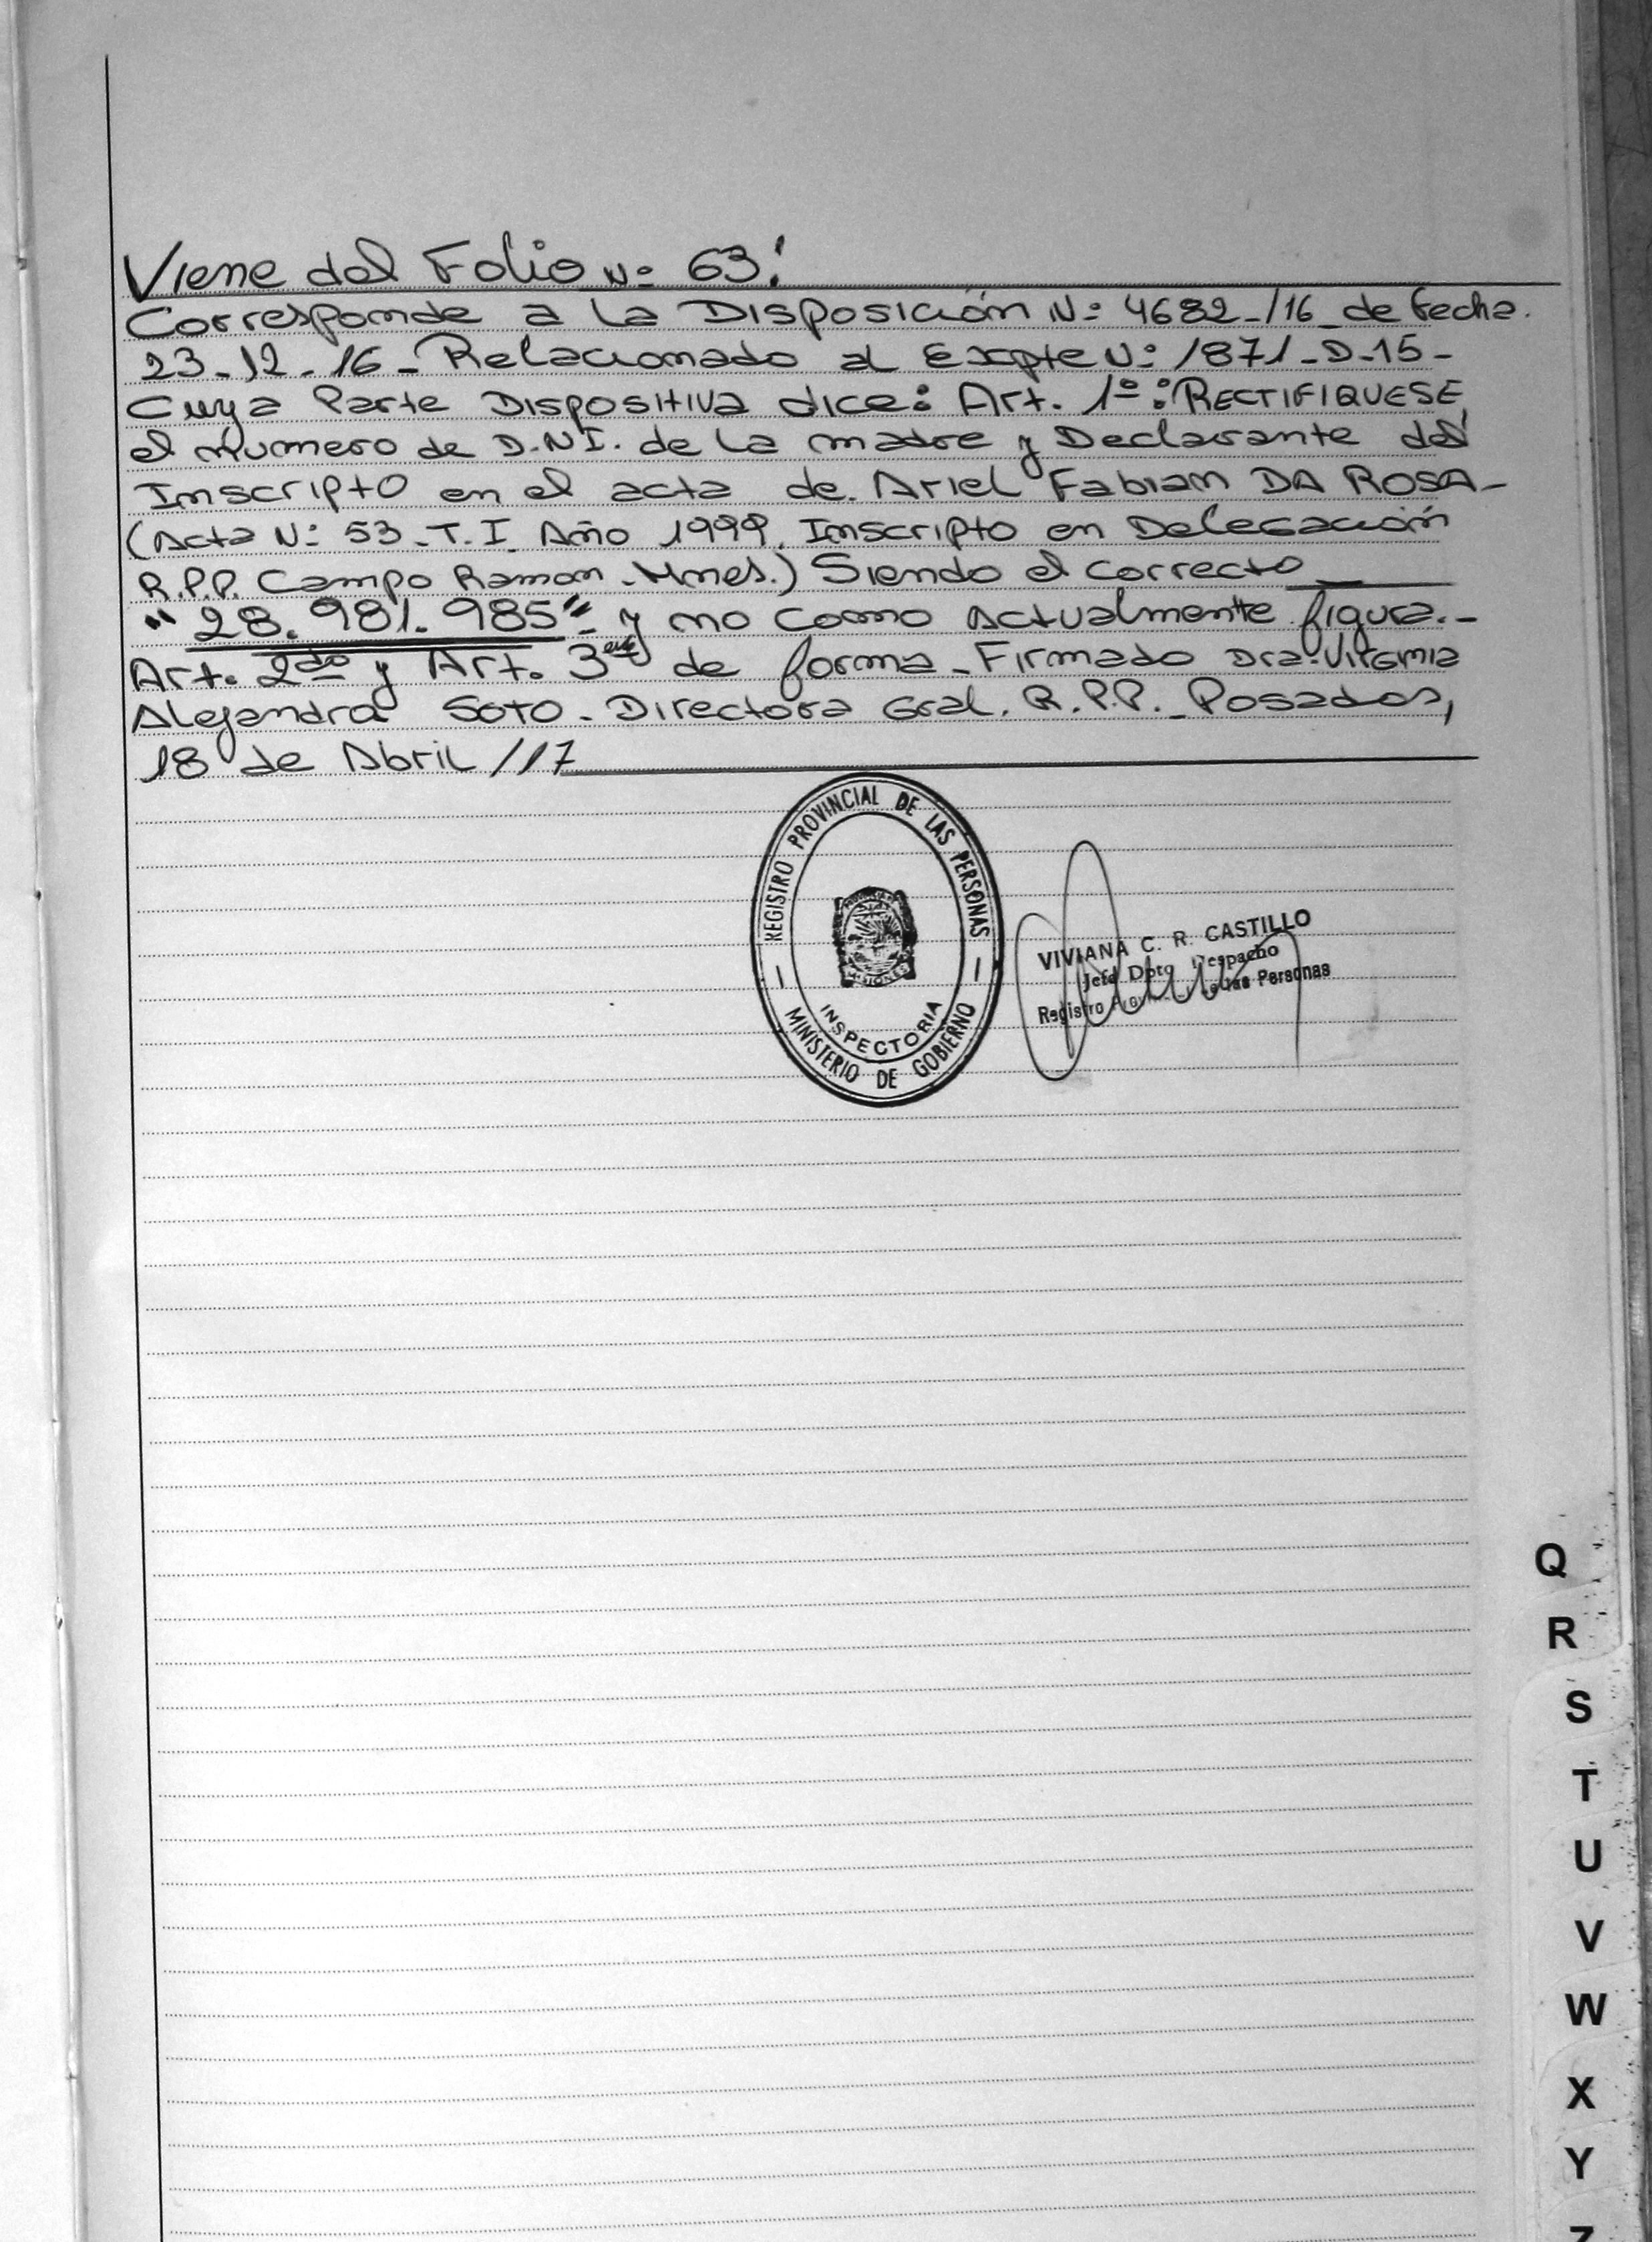 Viene del Folio Nº 63:
Corresponde a la Disposición Nº 4682-/16 de fecha.
23-12-16- Relacionado al Expte Nº 1871-D-15-
Cuya Parte Dispositiva dice: Art. 1º: RECTIFIQUESE,
el Numero de D.N.I. de la madre y Declarante del
Inscripto en el acta de Ariel Fabian DA ROSA-
(Acta Nº 53-T.I. Año 1999. Inscripto en Delegación
R.P.P. Campo Ramon-Mnes.) Siendo el correcto
"28.981.985" y no como Actualmente figura.-
Art. 2do y Art. 3ero de forma-Firmado Dra. Virginia
Alejandra SOTO-Directora Gral. R.P.P.-Posadas,
18 de Abril /17
REGISTRO PROVINCIAL DE LAS PERSONAS
INSPECTORIA
MINISTERIO DE GOBIERNO
VIVIANA C. R. CASTILLO
Jefa Dpto Despacho
Registro las Personas
Q
R
S
T
U
V
W
X
Y
Z